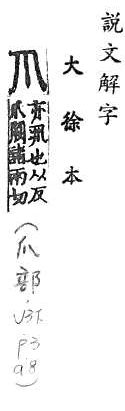 說文解字
大徐本
亦丮也从反
爪闕諸兩切
(爪部·V3下 P3 a8)